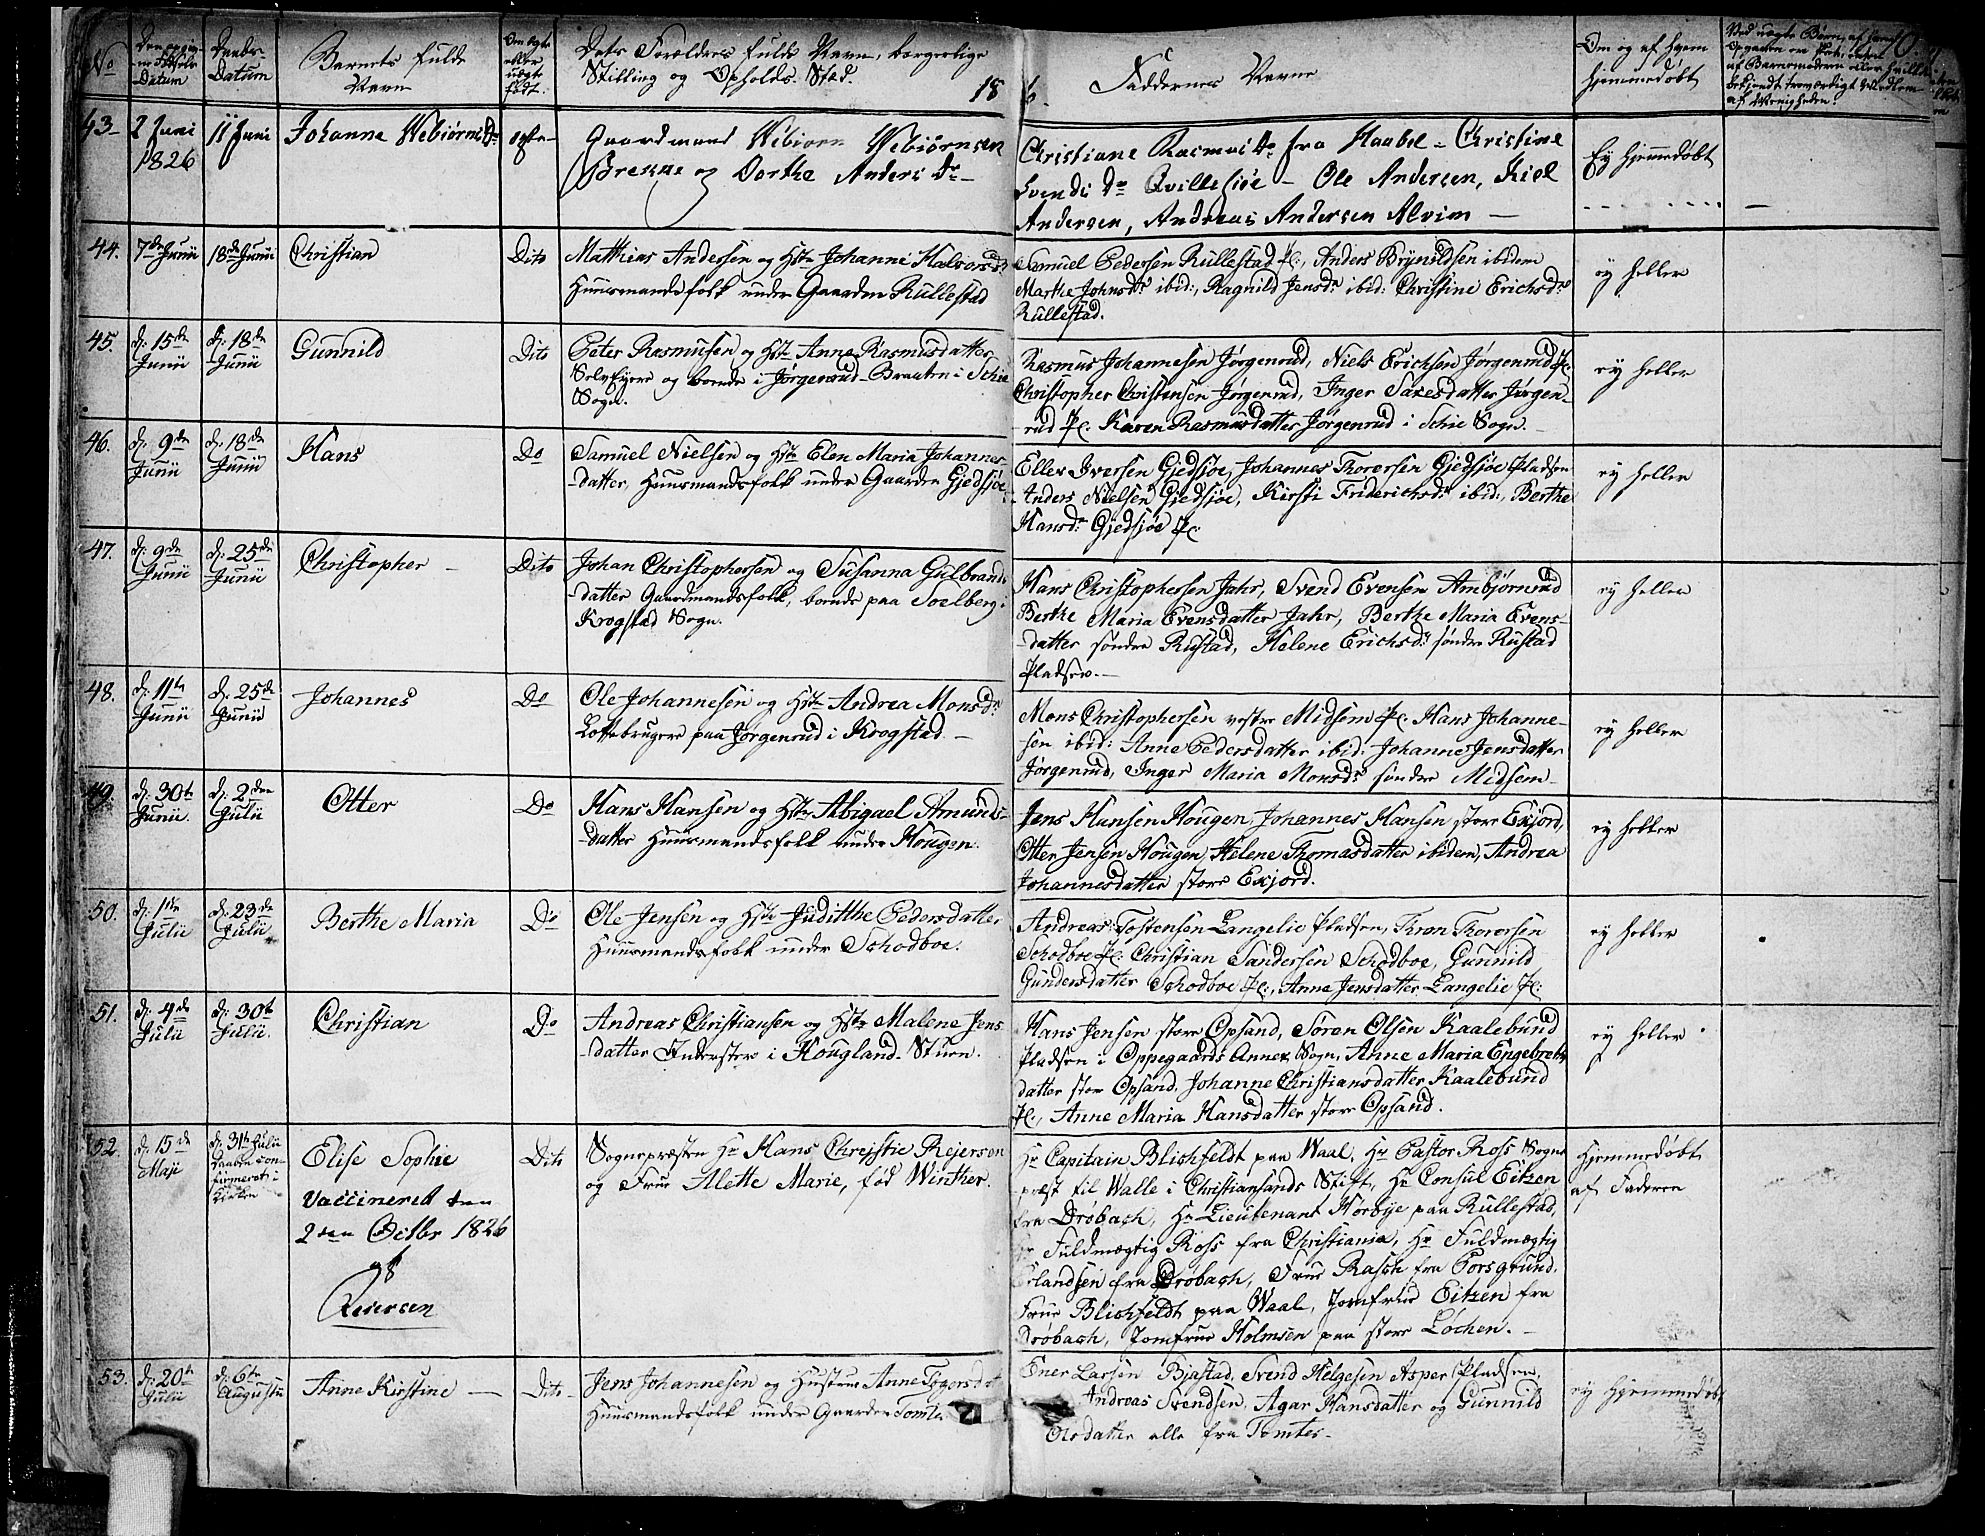 No
Den ny
Datum
Daabs
Datum
Barnets fulde
Navn
Om ægte
eller
uægte
født.
Dets Forældres fulde Navn, borgerlige
Stilling og Opholds-Sted.
18
Faddernes Navne
Om og af hvem
hjemmedøbt
43
2 Juni
1826
11 Juni
Johanne Webiørnsdr
ægte
Gaardmand Webiørn Webiørnsen
Brekke og Dorthe Andersdr
Christiane Rasmusdr fra Haabøl - Christine
Svendsdr Qvillesjøe - Ole Andersen, Kiel
Andersen, Andreas Andersen Alvim -
Ey hjemmedøbt
44.
7de Junii
18de Junii
Christian
Dito
Matthias Andersen og Hstr Johanne Halvorsdr
Huusmandsfolk under Gaarden Rullestad
Samuel Pedersen Rullestad Pl:, Anders Brynildsen ibidem
Marthe Johnsdr ibid:, Ragnild Jensdr ibid: Christine Erichsdr
Rullestad.
ey heller
45.
d: 15de
Junii
d: 18de
Junii
Gunnild
Dito
Peter Rasmusen og Hstr Anne Rasmusdatter
Selveyere og boende i Jørgenrud-Braaten i Schie
Sogn.
Rasmus Johannesen Jørgenrud, Niels Erichsen Jørgenrud Pl:
Christopher Christensen Jørgenrud, Inger Saresdatter Jørgen-
rud Pl: Karen Rasmusdatter Jørgenrud i Schie Sogn.
ey heller
46.
d: 9de
Junii
d: 18de
Junii
Hans
Do
Samuel Nielsen og Hstr Elen Maria Johannes-
datter, Huusmandsfolk under Gaarden Gjedsjøe
Ellev Iversen Gjedsjøe, Johannes Thorersen Gjedsjøe Pladsen
Anders Nielsen Gjedsjøe, Kirsti Friderichsdr ibid:, Berthe
Hansdr Gjedsjøe Pl:
ey heller
47.
d: 9de
Junii
d: 25de
Junii
Christopher
Dito
Johan Christophersen og Susanna Gulbrands-
datter Gaardmandsfolk, boende paa Soelberg i
Krogstad Sogn.
Hans Christophersen Jahr, Svend Evensen Ambjørnrud
Berthe Maria Evensdatter Jahr, Berthe Maria Evens-
datter søndre Rustad, Helene Erichsdr søndre Rustad
Pladsen.
ey heller
48.
d: 11te
Junii
d: 25de
Junii
Johannes
Do
Ole Johannesen og Hstr Andrea Monsdr
Lottebrugere paa Jørgenrud i Krogstad -
Mons Christophersen vestre Midsem Pl: Hans Johanne-
sen ibid: Anne Pedersdatter ibid: Johanne Jensdatter
Jørgenrud, Inger Maria Monsdr søndre Midsem -
ey heller
49.
d: 30te
Junii.
d: 2den
Julii
Otter
Do
Hans Hansen og Hstr Abigael Amunds-
datter Huusmandsfolk under Hougen.
Jens Hansen Hougen, Johannes Hansen store Exjord,
Otter Jensen Hougen, Helene Thomasdatter ibidem, Andrea
Johannesdatter store Exjord.
ey heller
50.
d: 1ste
Julii
d: 23de
Julii
Berthe Maria
Do
Ole Jensen og Hstr Juditthe Pedersdatter
Huusmandsfolk under Schodboe.
Andreas Tostensen Langelie Pladsen, Tron Thorersen
Schodboe Pl: Christian Sandersen Schodboe, Gunnild
Gundersdatter Schodboe Pl:, Anne Jensdatter Langelie Pl:
ey heller
51.
d: 4de
Julii
d: 30te
Julii.
Christian
Do
Andreas Christiansen og Hstr Malene Jens-
datter Inderster i Hougland-Stuen.
Hans Jensen store Opsand, Søren Olsen Kaalebund
Pladsen i Oppegaards Annex Sogn, Anne Maria Engebrets-
datter store Opsand, Johanne Christiansdatter Kaalebund
Pl:, Anne Maria Hansdatter store Opsand.
ey heller
52.
d: 15de
Maji
d: 31te Julii
Daaben con-
firmeret i
Kirken
Elise Sophie
Vaccineret den
2den Octbr 1826
af
Reiersen
Dito
Sognepræsten Hr Hans Christie Rejersen
og Frue Alette Marie, fød Winther.
Hr Capitain Blichfeldt paa Waal, Hr Pastor Ross Sogne-
præst til Walle i Christiansands Stift, Hr Consul Eitzen
fra Drøbach, Hr Lieutenant Horbye paa Rullestad,
Hr Fuldmægtig Ross fra Christiania, Hr Fuldmægtig
Erlandsen fra Drøbach, Frue Rasch fra Porsgrund.
Frue Blichfeldt paa Waal, Jomfrue Eitzen fra
Drøbach, Jomfrue Holmsen paa store Løchen. -
Hjemmedøbt
af Faderen
53.
d: 20de
Julii
d: 6te
Augusti
Anne Kirstine
Dito
Jens Johannesen og Hustrue Anne
Huusmandsfolk under Gaarden Tomter
Ener Larsen Bjastad, Svend Helgesen Asper Pladsen,
Andreas Svendsen, Agar Hansdatter og Gunnild
Olsdatter alle fra Tomter -
ey hjemmedøbt